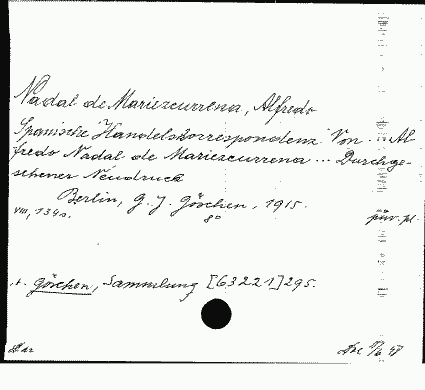 Nadal de Mariezcurrena, Alfredo
Spanische Handelskorrespondenz. Von ... Al-
fredo Nadal de Mariezcurrena ... Durchge-
sehener Neudruck
Berlin, G. J. Göschen, 1915.
VIII, 134 s. 8°
Göschen, Sammlung [63221]295.